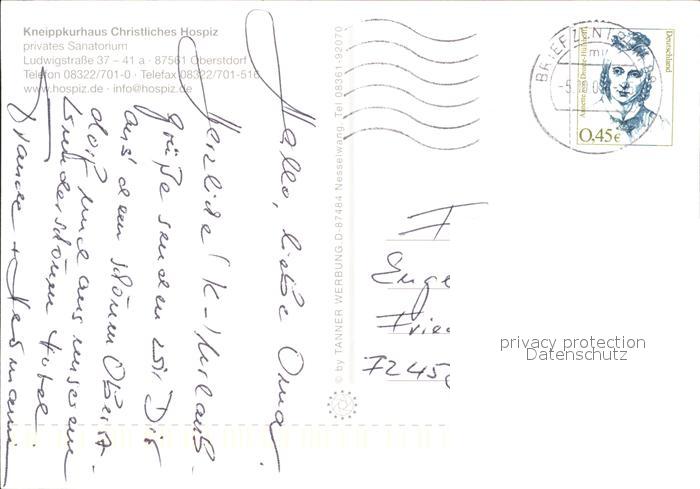 Kneippkurhaus Christliches Hospiz
privates Sanatorium
Ludwigstraße 37 – 41 a · 87561 Oberstdorf
Telefon 08322/701-0 · Telefax 08322/701-516
www.hospiz.de · info@hospiz.de
Hallo, liebe Oma
Herzliche (K-)Urlaubs-
grüße senden wir Dir
aus dem schönen Oberst-
dorf und aus unserem
wunderschönen Hotel
+ Hermann
© by TANNER WERBUNG D-87484 Nesselwang, Tel 08361-92070
BRIEFZENTR
Deutschland
Annette von Droste-Hülshoff
0,45€
F
Enge
Frie
7245
privacy protection
Datenschutz